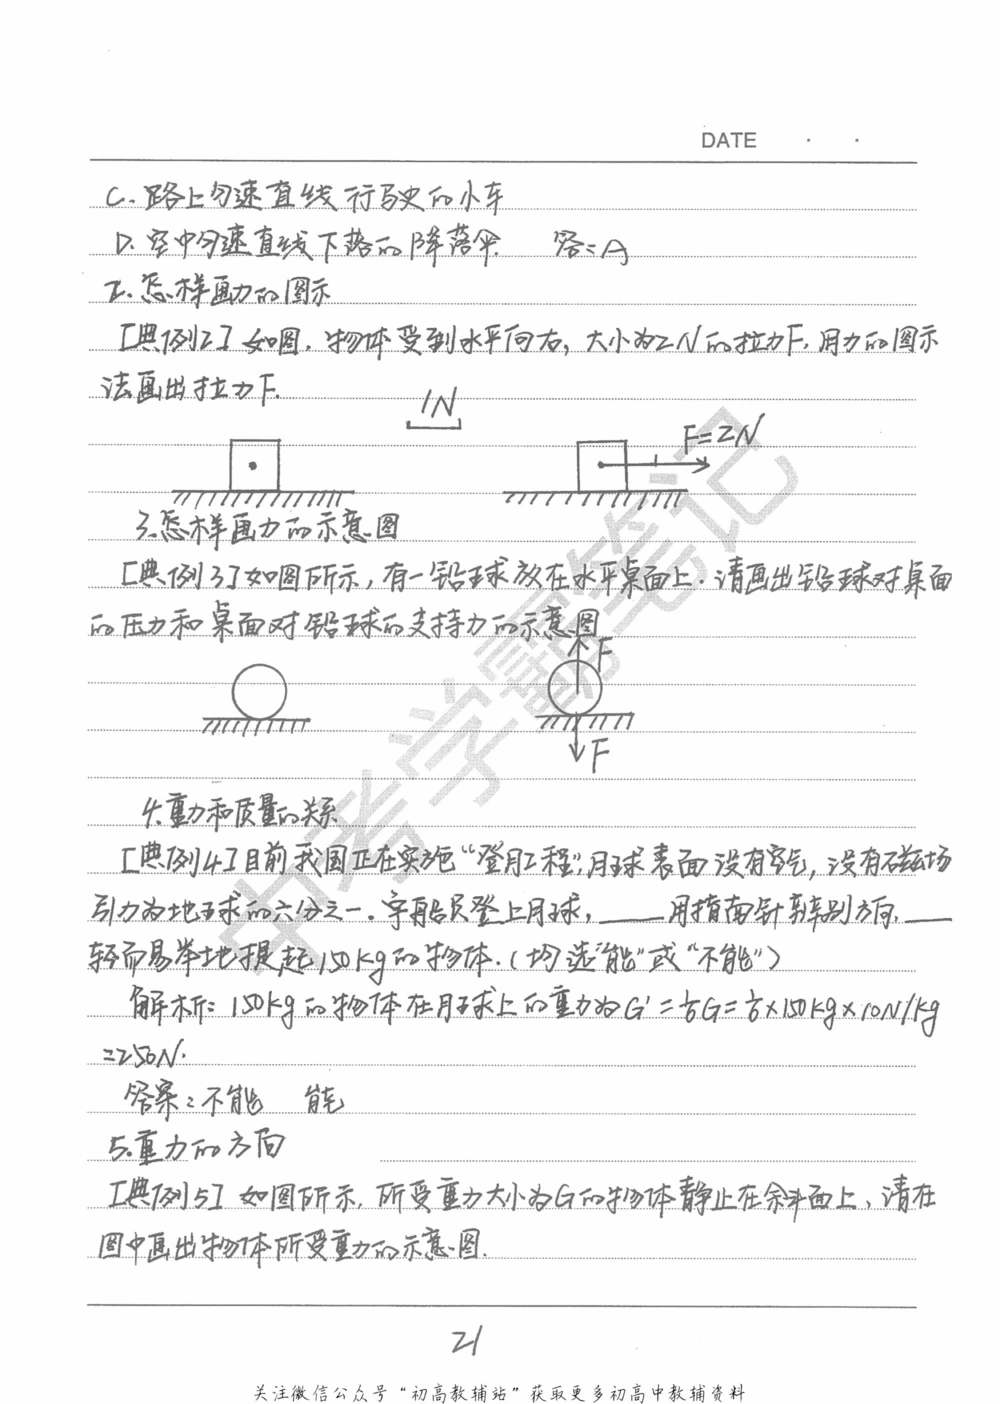 DATE · ·
C. 路上匀速直线行驶的小车
D. 空中匀速直线下落的降落伞. 答=A
2. 怎样画力的图示
[典例2] 如图, 物体受到水平向右, 大小为2N的拉力F, 用力的图示
法画出拉力F.
1N
F=2N
3. 怎样画力的示意图
[典例3] 如图所示, 有一铅球放在水平桌面上. 请画出铅球对桌面
的压力和桌面对铅球的支持力的示意图
F
F
4. 重力和质量的关系
[典例4] 目前我国正在实施“登月工程”, 月球表面没有空气, 没有磁场
引力为地球的六分之一. 宇航员登上月球, ____用指南针辨别方向, ____
轻而易举地提起150kg的物体. (均选“能”或“不能”)
解析: 150kg的物体在月球上的重力为G'=1/6G=1/6×150kg×10N/kg
=250N.
答案: 不能 能
5. 重力的方向
[典例5] 如图所示, 所受重力大小为G的物体静止在斜面上, 请在
图中画出物体所受重力的示意图.
21
中考学霸笔记
关注微信公众号“初高教辅站”获取更多初高中教辅资料